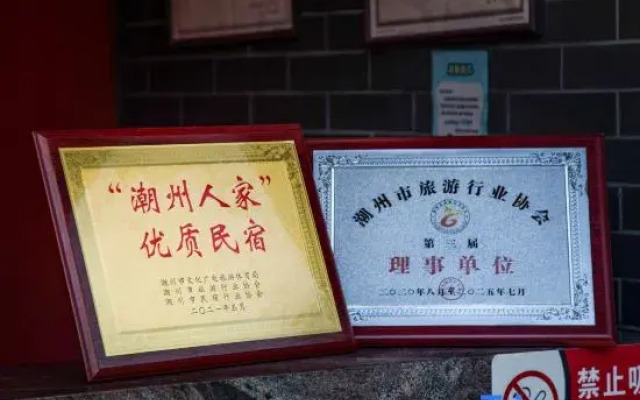 “潮州人家”
优质民宿
潮州市文化广电旅游体育局
潮州市旅游行业协会
潮州市民宿行业协会
二〇二一年五月
潮州市旅游行业协会
第三届
理事单位
二〇二〇年八年至二〇二五年七月
禁止吸